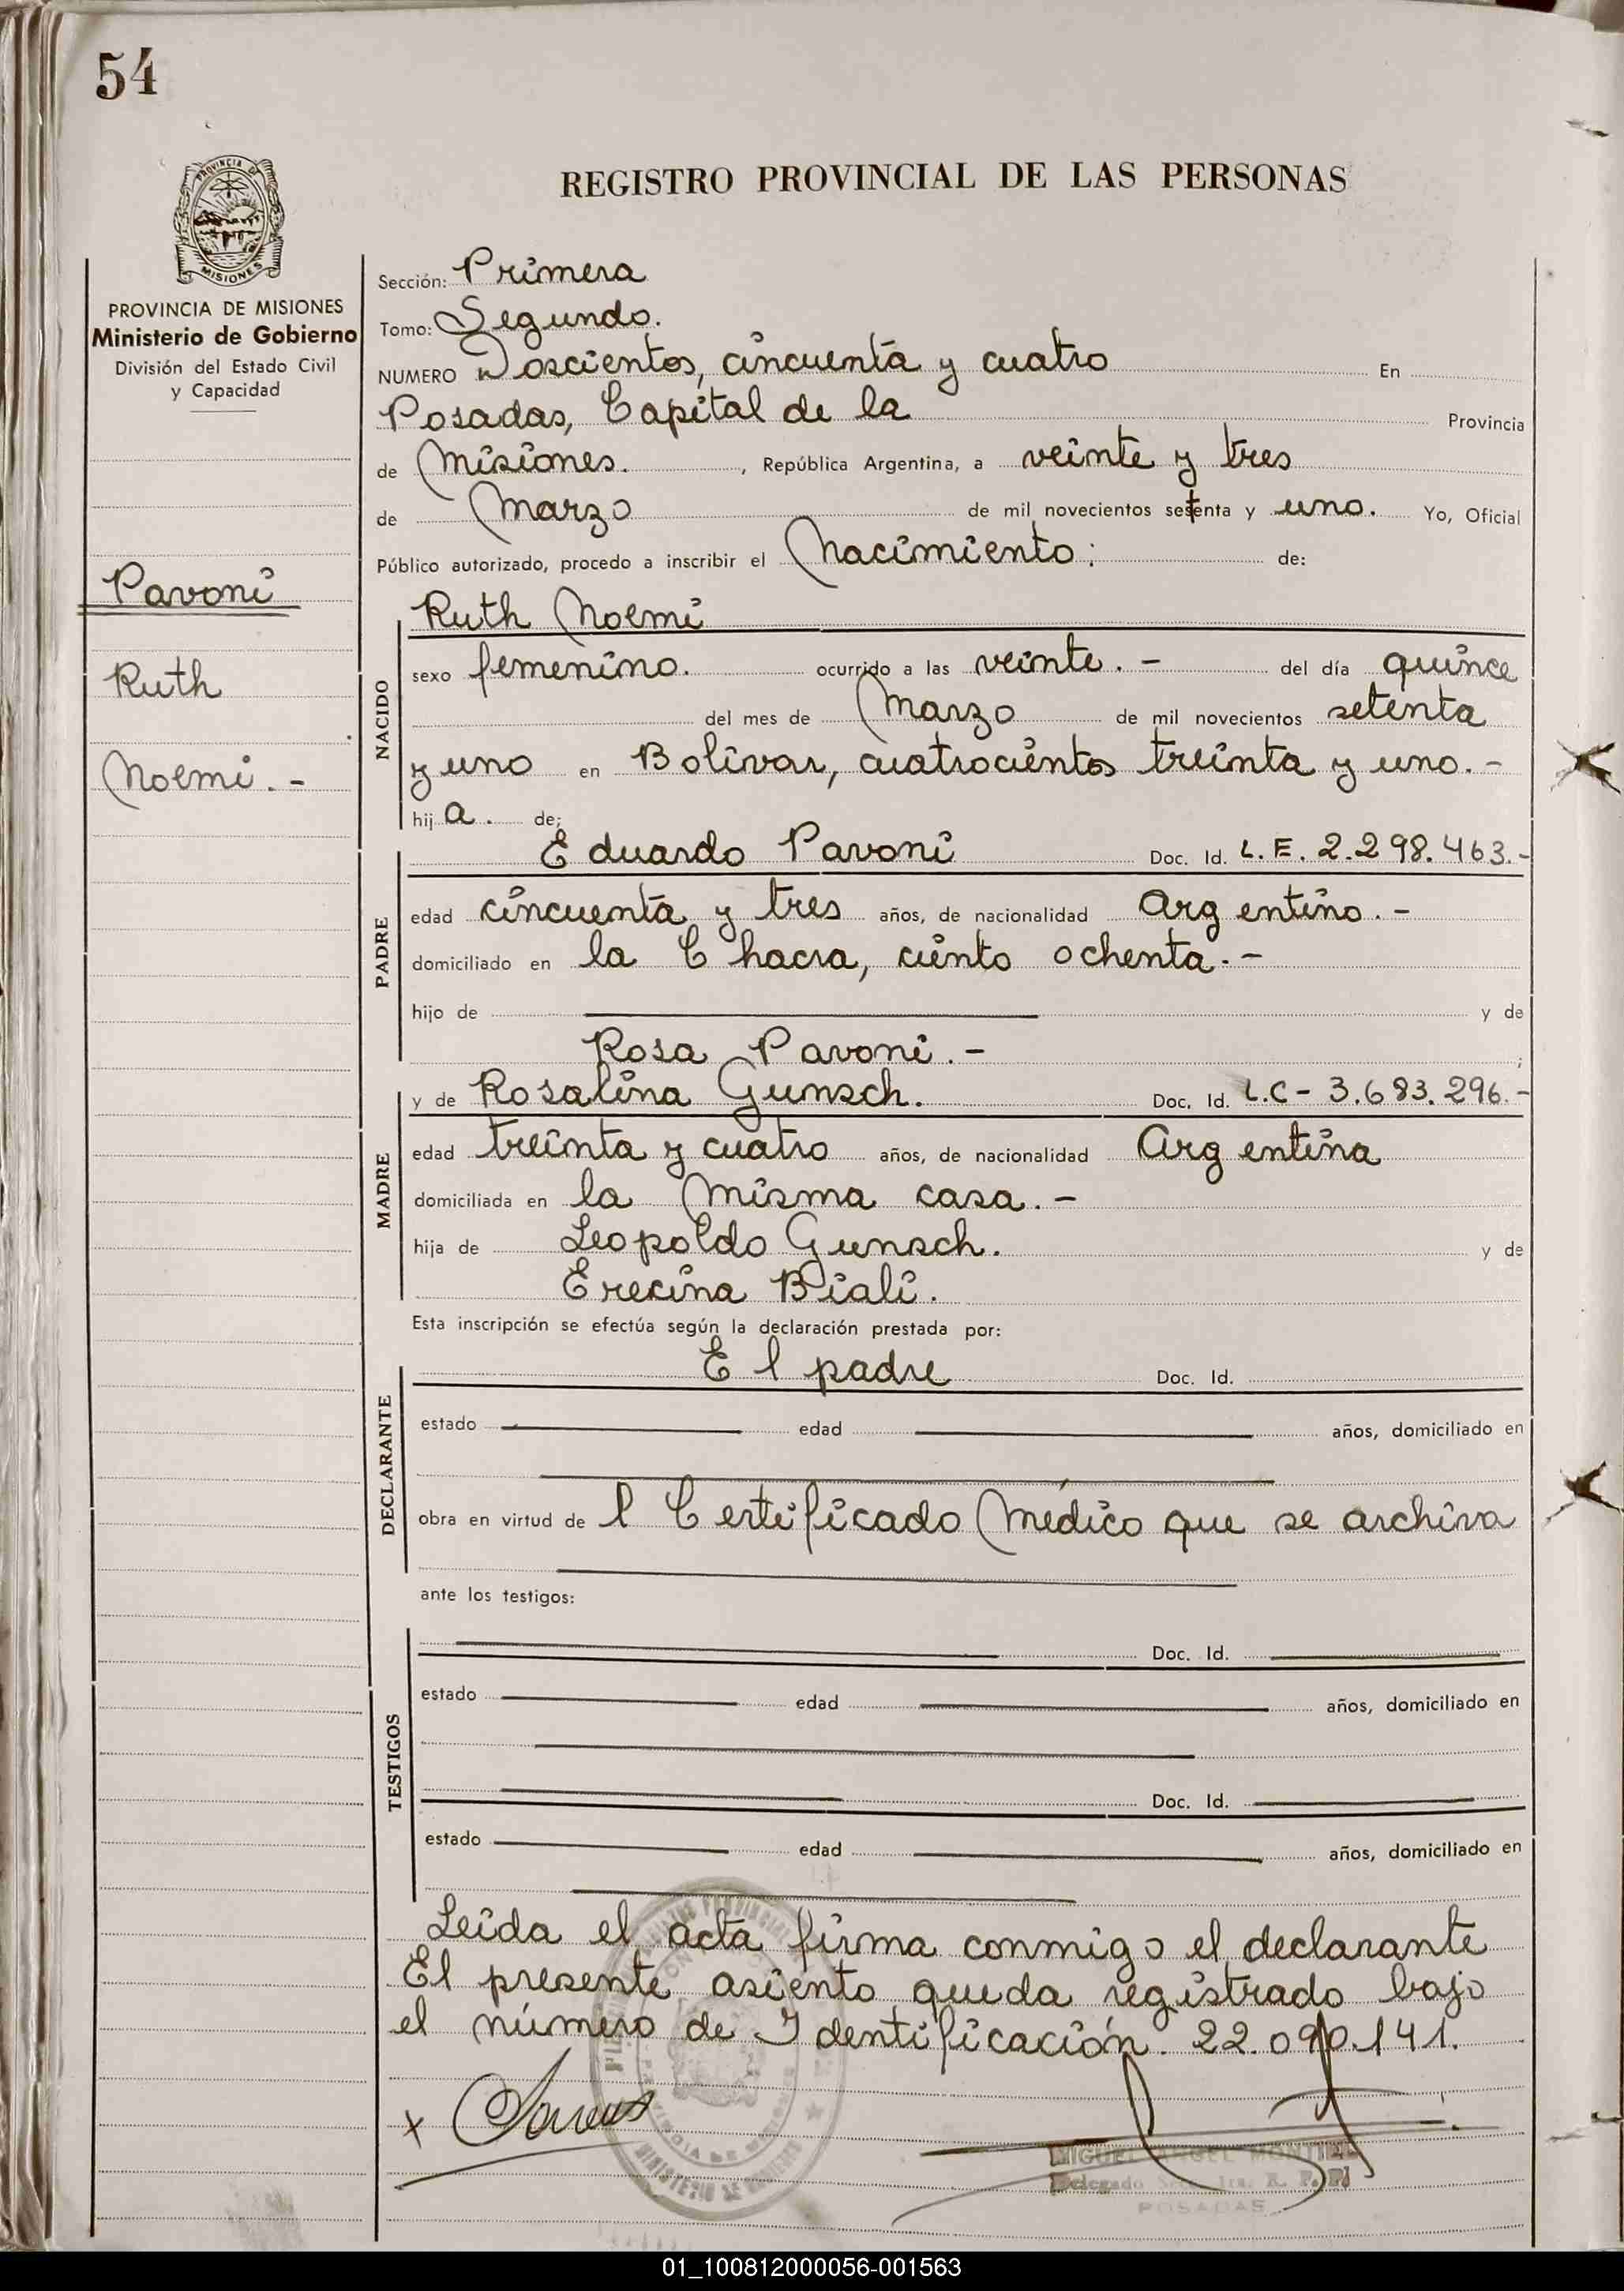 54
PROVINCIA DE
MISIONES
REGISTRO PROVINCIAL DE LAS PERSONAS
PROVINCIA DE MISIONES
Ministerio de Gobierno
División del Estado Civil
y Capacidad
Pavoni
Ruth
Noemi. -
Sección: Primera
Tomo: Segundo.
NUMERO Doscientos, cincuenta y cuatro En
Posadas, Capital de la Provincia
de Misiones. , República Argentina, a veinte y tres
de Marzo de mil novecientos setenta y uno. Yo, Oficial
Público autorizado, procedo a inscribir el Nacimiento: de:
NACIDO
Ruth Noemi
sexo femenino. ocurrido a las veinte. - del día quince
del mes de Marzo de mil novecientos setenta
y uno en Bolivar, cuatrocientos treinta y uno. -
hij a. de;
PADRE
Eduardo Pavoni Doc. Id. L.E. 2.298.463.-
edad cincuenta y tres años, de nacionalidad Argentino. -
domiciliado en la Chacra, ciento ochenta. -
hijo de y de
Rosa Pavoni. - ;
MADRE
y de Rosalina Gunsch. Doc. Id. L.C - 3.683.296. -
edad treinta y cuatro años, de nacionalidad Argentina
domiciliada en la misma casa. -
hija de Leopoldo Gunsch. y de
Erecina Biali.
Esta inscripción se efectúa según la declaración prestada por:
DECLARANTE
El padre Doc. Id.
estado edad años, domiciliado en
obra en virtud de l Certificado Médico que se archiva
ante los testigos:
TESTIGOS
Doc. Id.
estado edad años, domiciliado en
Doc. Id.
estado edad años, domiciliado en
Leida el acta firma conmigo el declarante
El presente asiento queda registrado bajo
el número de Identificación. 22.090.141.
x
MIGUEL ANGEL MONTIEL
Delegado Secc. 1ra. R. P. P.
POSADAS
01_100812000056-001563